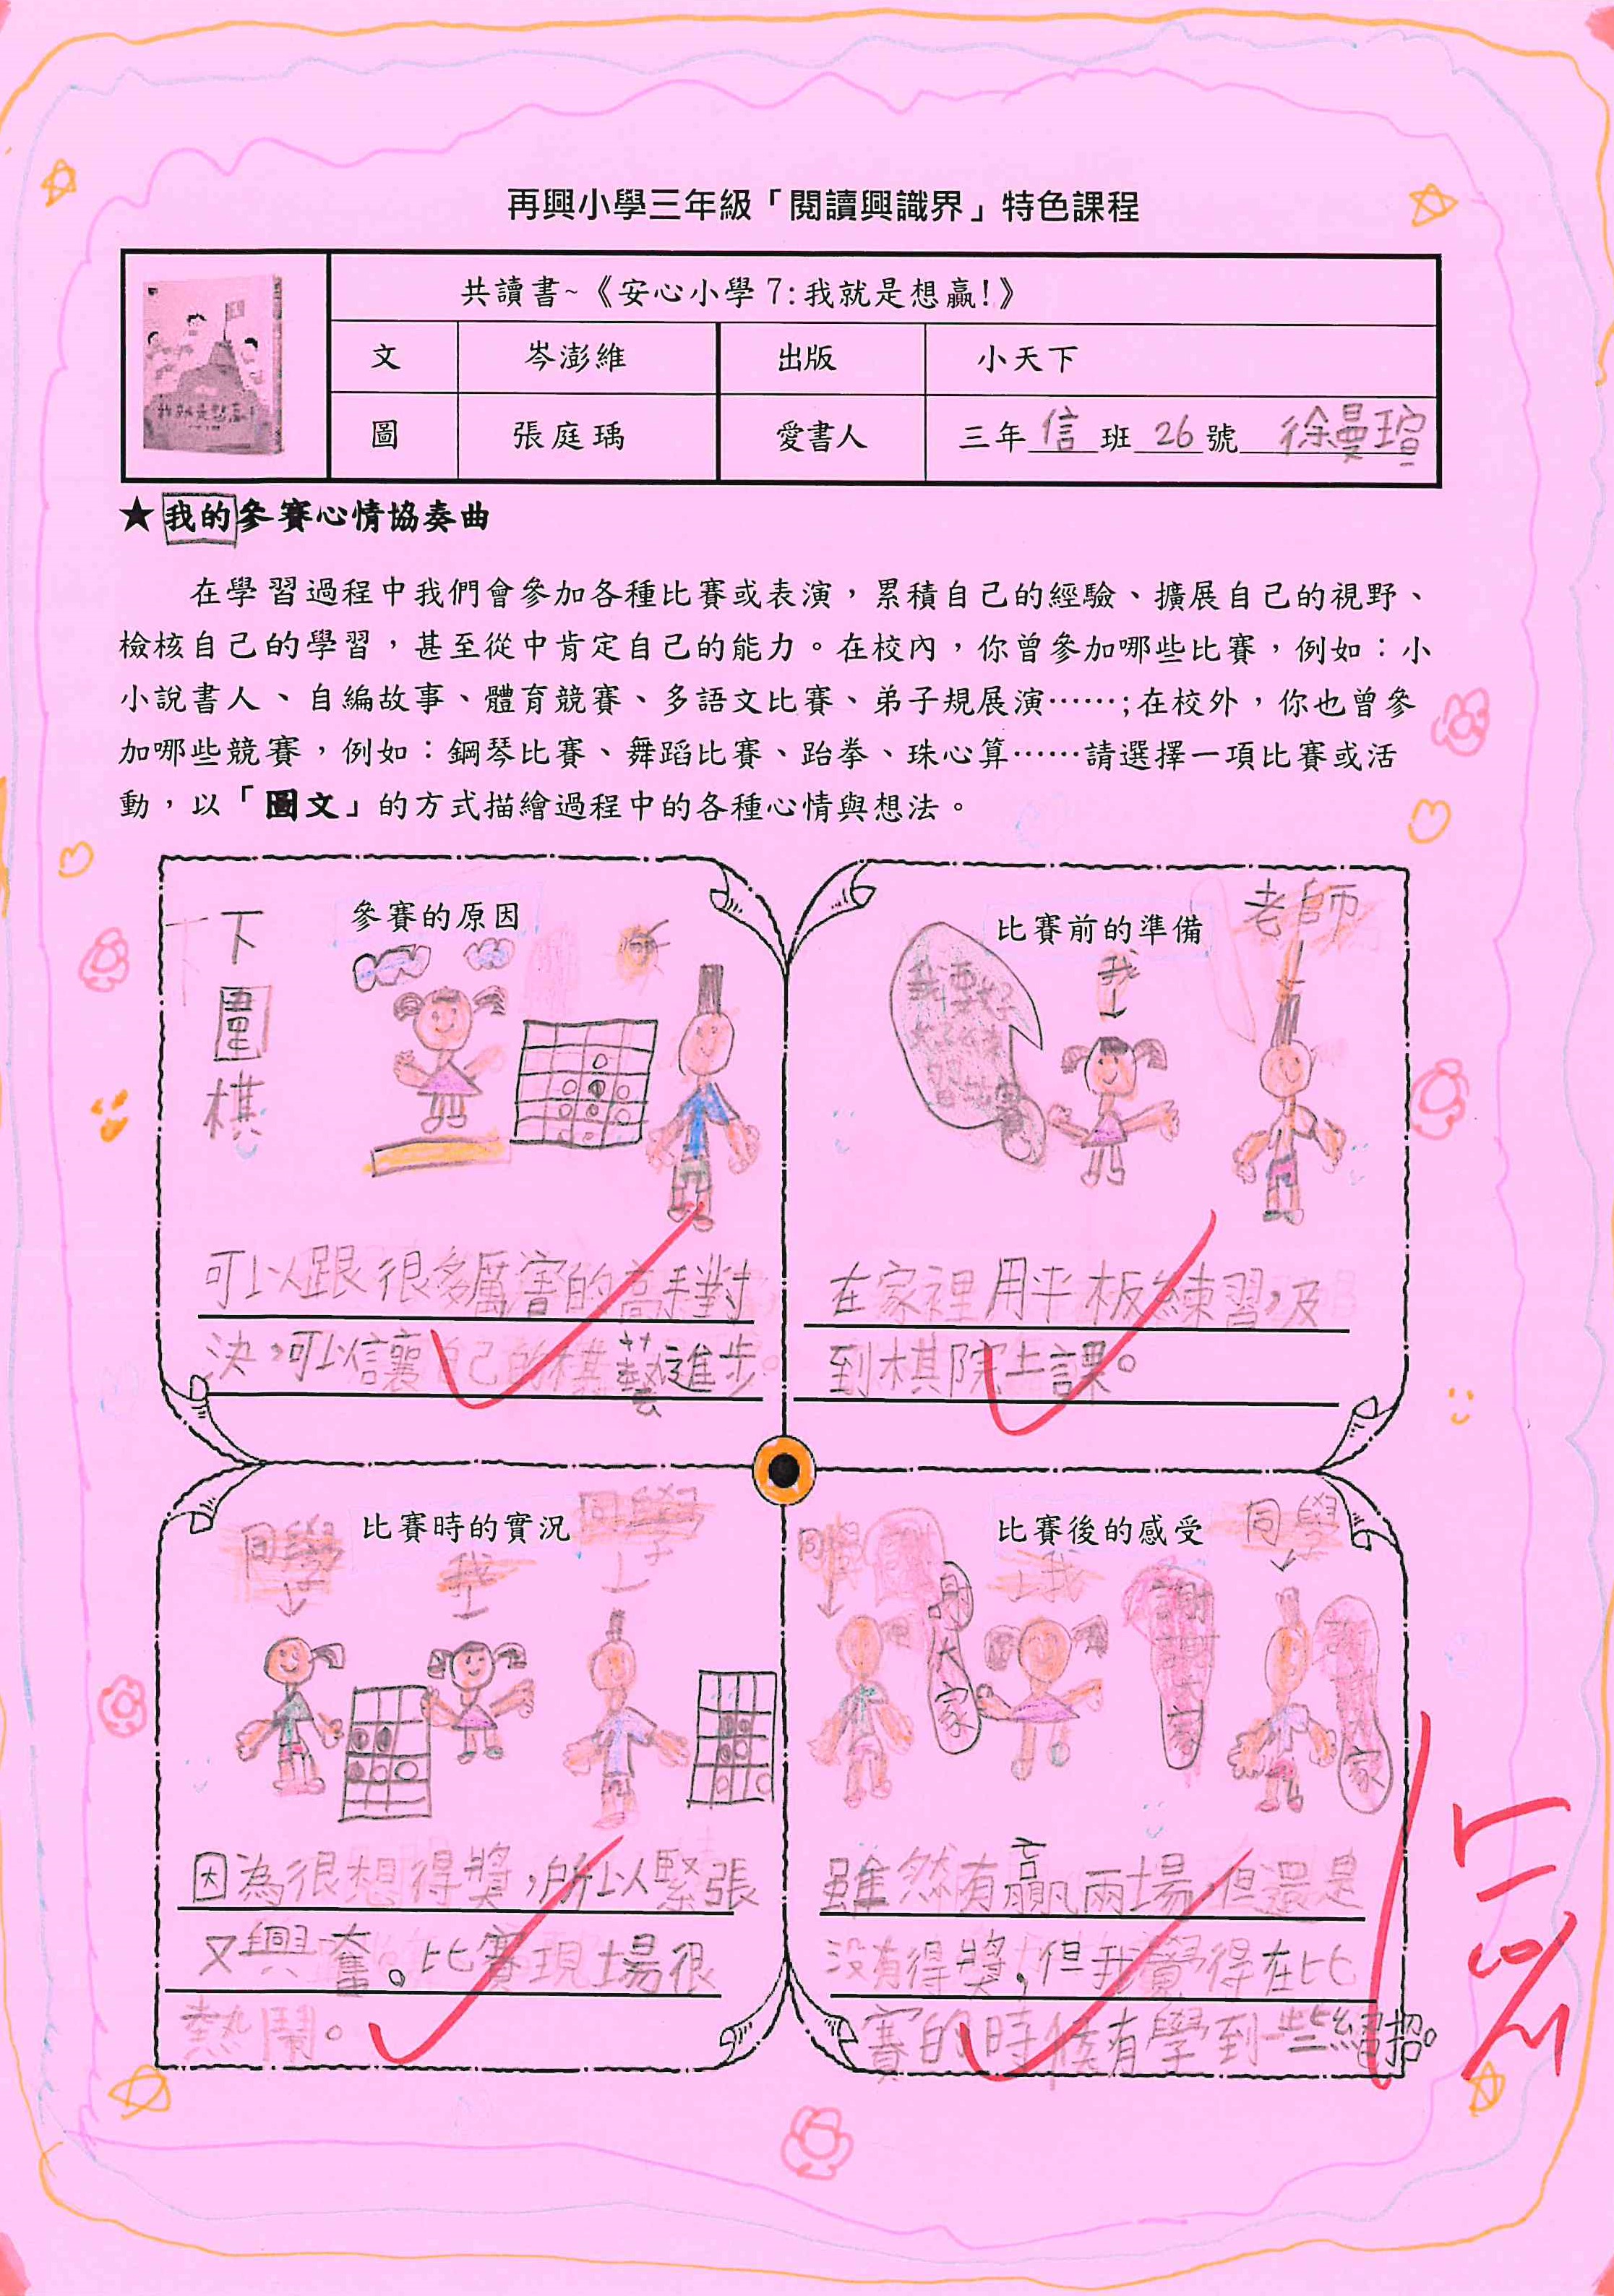 再興小學三年級「閱讀興識界」特色課程
共讀書~《安心小學7:我就是想贏!》
我就是想贏!
文 岑澎維 出版 小天下
圖 張庭瑀 愛書人 三年信班26號 徐曼瑄
★我的參賽心情協奏曲
在學習過程中我們會參加各種比賽或表演，累積自己的經驗、擴展自己的視野、
檢核自己的學習，甚至從中肯定自己的能力。在校內，你曾參加哪些比賽，例如：小
小說書人、自編故事、體育競賽、多語文比賽、弟子規展演……;在校外，你也曾參
加哪些競賽，例如：鋼琴比賽、舞蹈比賽、跆拳、珠心算……請選擇一項比賽或活
動，以「圖文」的方式描繪過程中的各種心情與想法。
參賽的原因
下圍棋
可以跟很多厲害的高手對
決，可以讓自己的棋藝進步。
比賽前的準備
老師
我
我要好
在家裡用平板練習，及
到棋院上課。
比賽時的實況
同學
我
同學
因為很想得獎，所以緊張
又興奮。比賽現場很
熱鬧。
比賽後的感受
同學
我
同學
謝謝大家
謝謝大家
謝謝大家
雖然有贏兩場，但還是
沒有得獎，但我覺得在比
賽的時候有學到一些絕招。